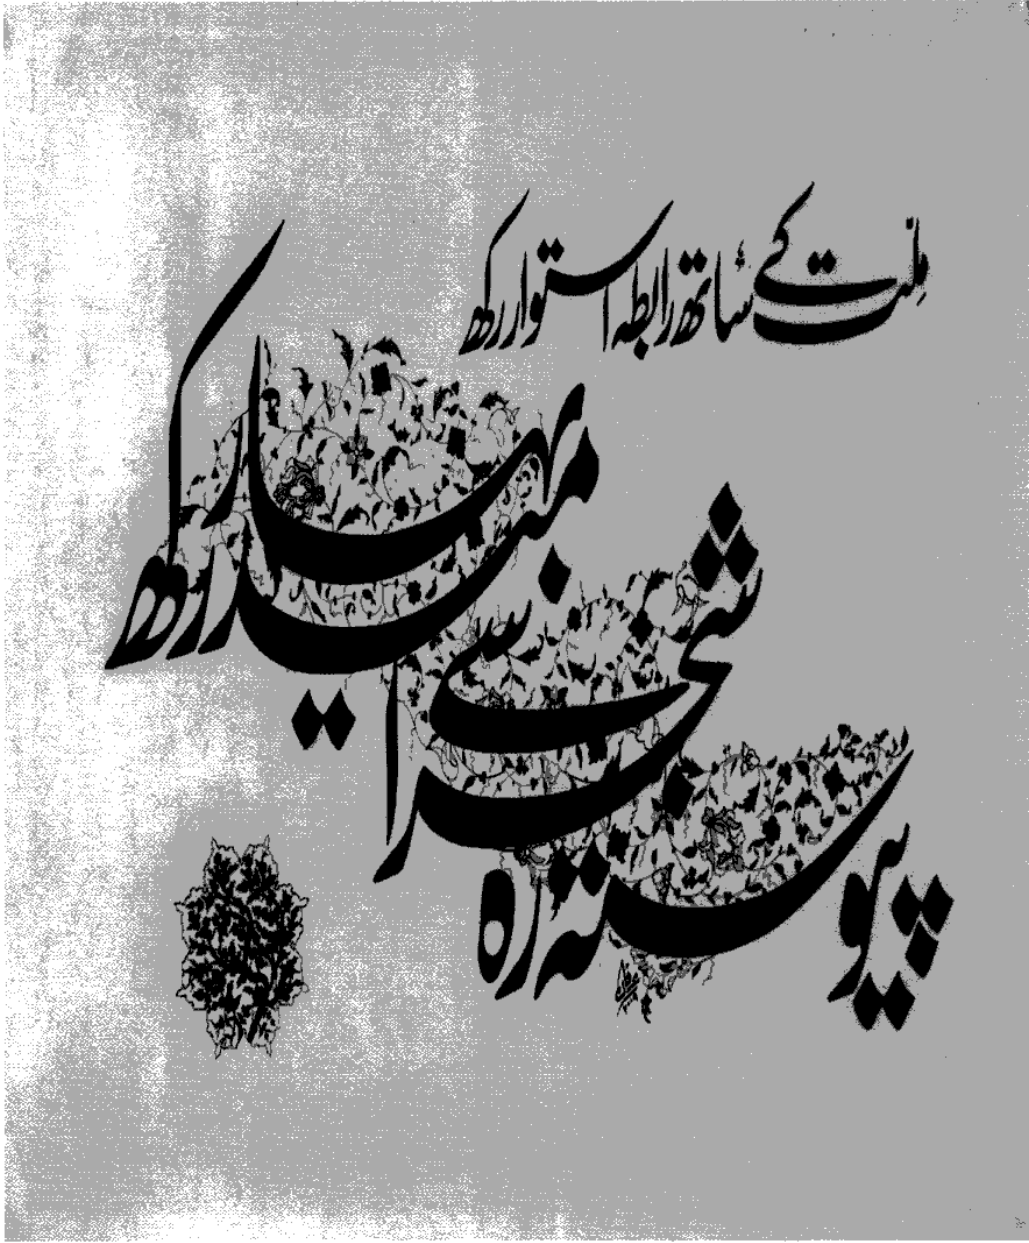 ملّت کے ساتھ رابطہ استوار رکھ
پیوستہ رہ شجر سے امید بہار رکھ